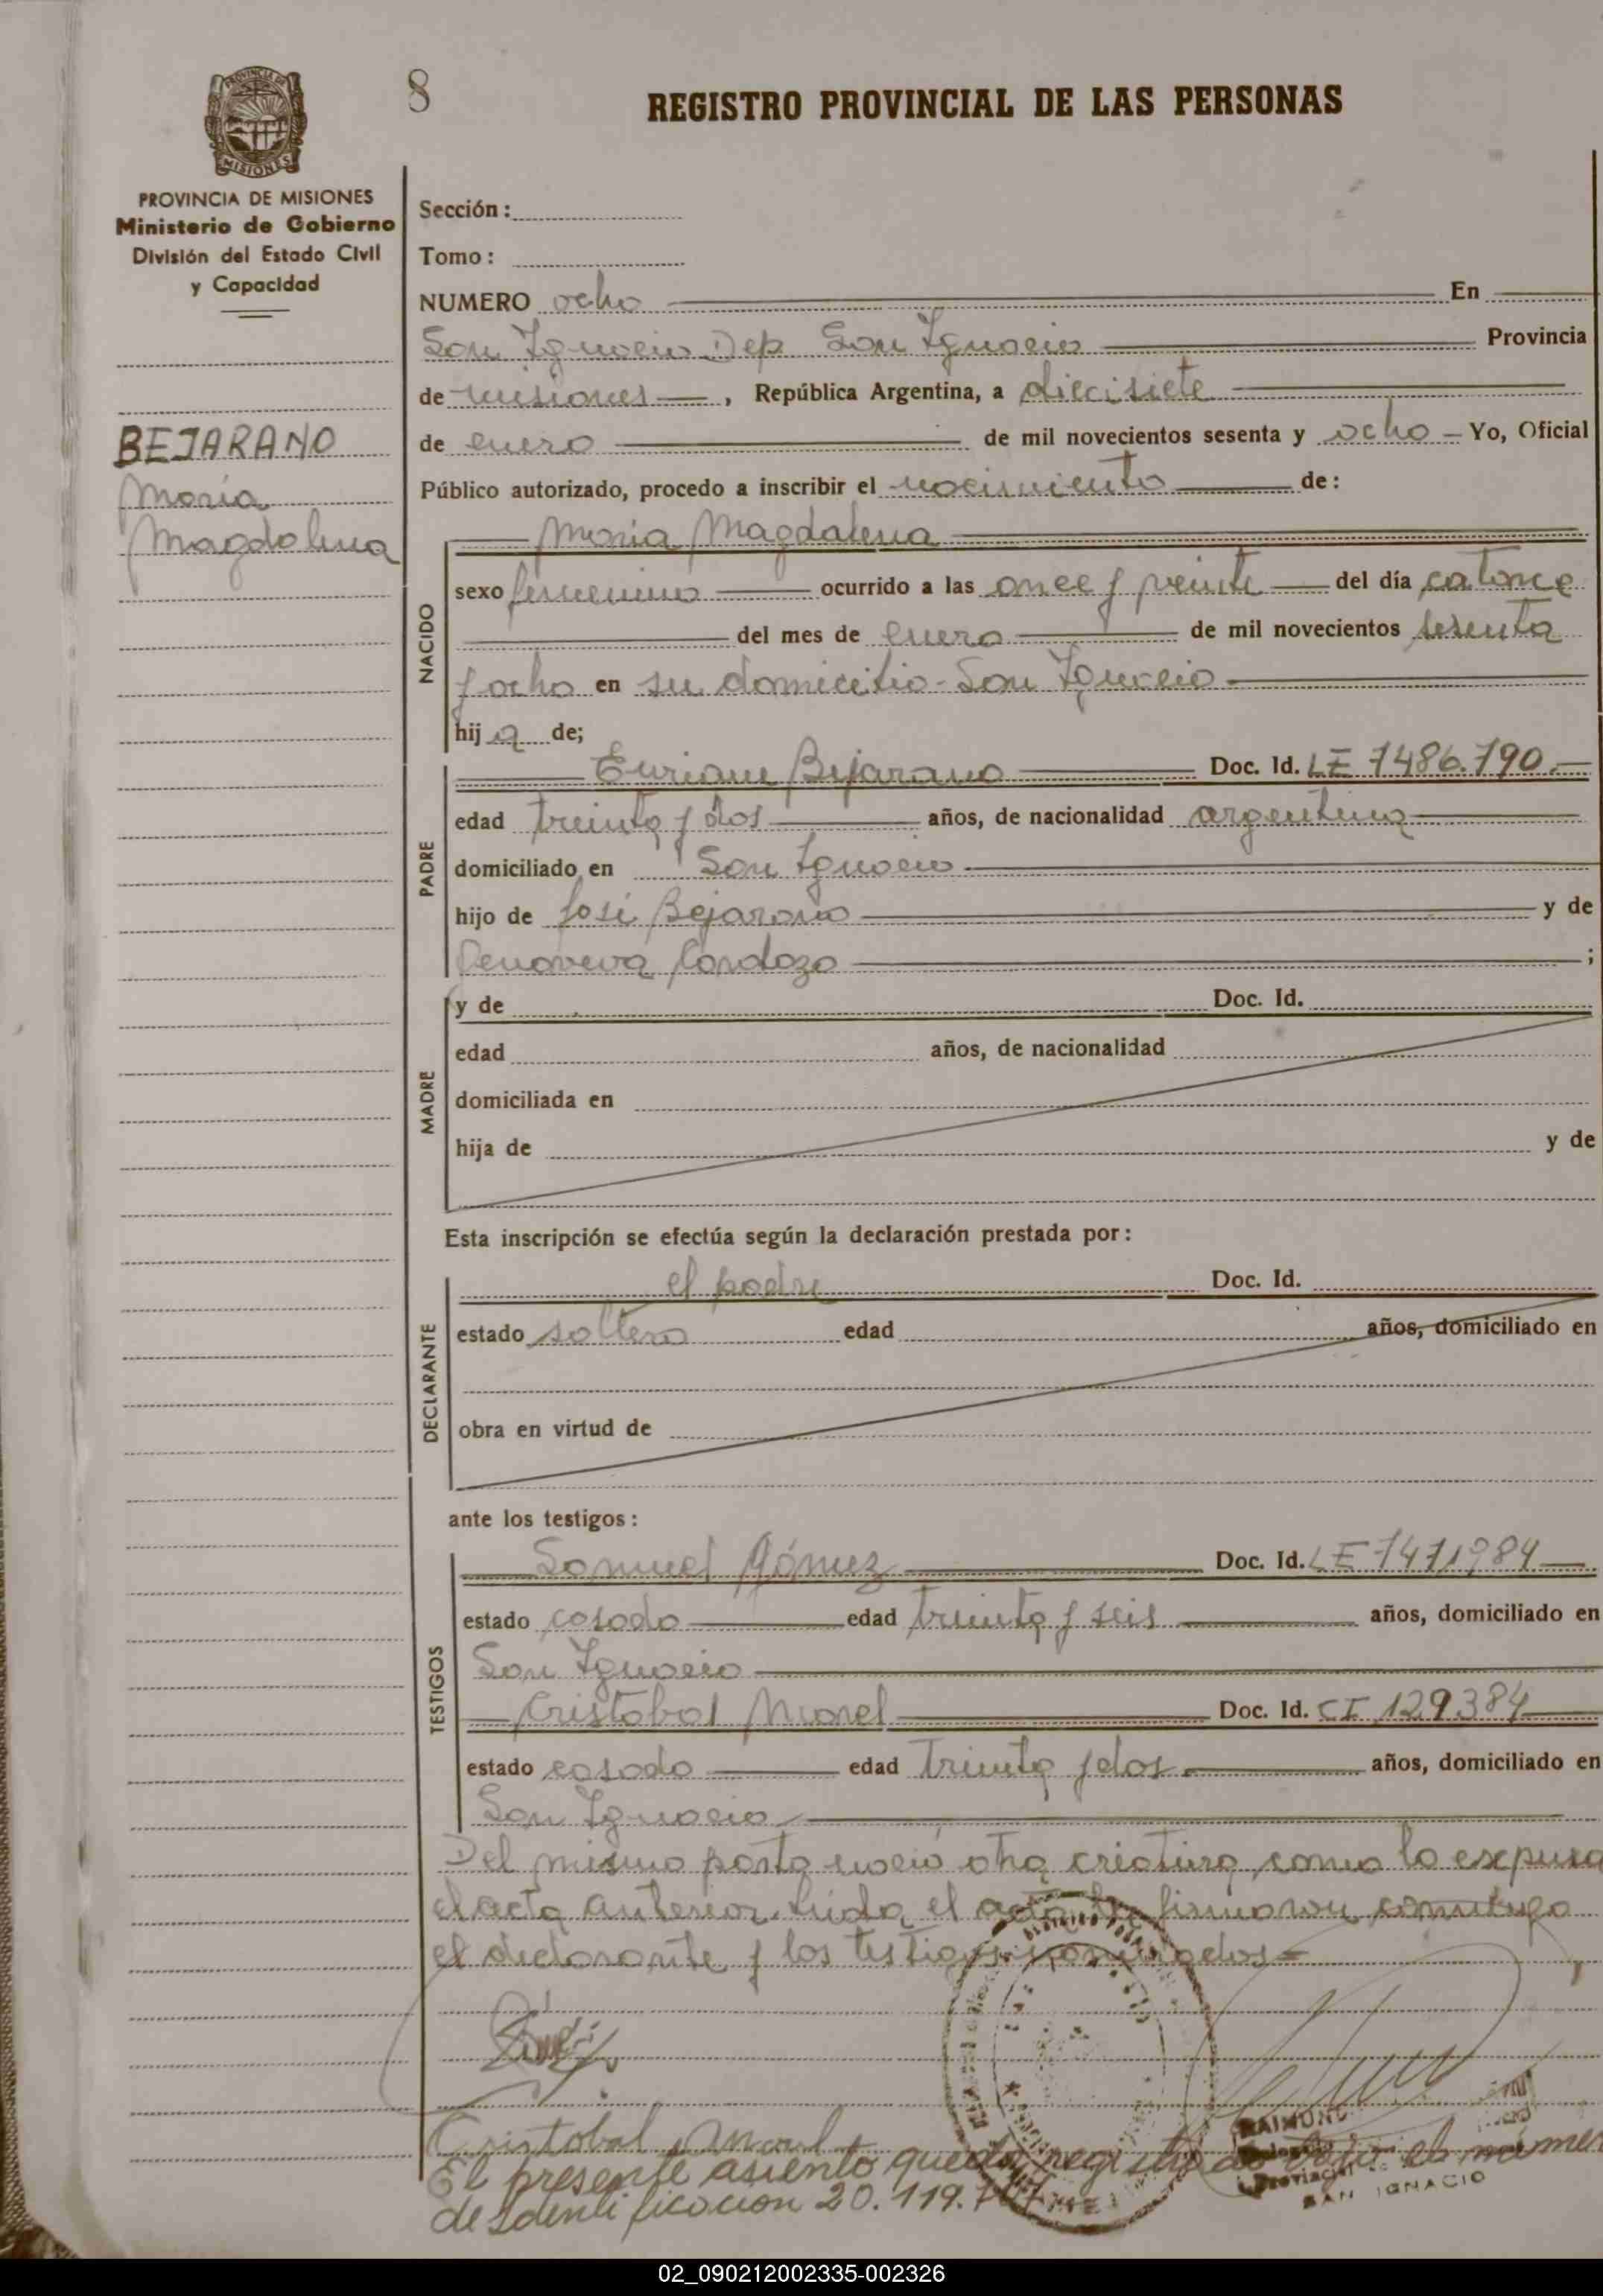 8
REGISTRO PROVINCIAL DE LAS PERSONAS
PROVINCIA DE
MISIONES
PROVINCIA DE MISIONES
Ministerio de Gobierno
División del Estado Civil
y Capacidad
BEJARANO
María
Magdalena
Sección:
Tomo:
NUMERO ocho En
San Ignacio Dep. San Ignacio Provincia
de misiones, República Argentina, a diecisiete
de enero de mil novecientos sesenta y ocho - Yo, Oficial
Público autorizado, procedo a inscribir el nacimiento de:
María Magdalena
NACIDO
sexo femenino ocurrido a las once y veinte del día catorce
del mes de enero de mil novecientos sesenta
y ocho en su domicilio - San Ignacio
hija de;
PADRE
Bejarano Doc. Id. LE 7486.790.-
edad treinta y dos años, de nacionalidad argentina
domiciliado en San Ignacio
hijo de José Bejarano y de
Genoveva Cardozo ;
MADRE
y de Doc. Id.
edad años, de nacionalidad
domiciliada en
hija de y de
Esta inscripción se efectúa según la declaración prestada por:
DECLARANTE
el padre Doc. Id.
estado soltero edad años, domiciliado en
obra en virtud de
ante los testigos:
TESTIGOS
Samuel Gómez Doc. Id. LE 7471984
estado casado edad treinta y seis años, domiciliado en
San Ignacio
Cristobal Morel Doc. Id. CI 129.384
estado casado edad treinta y dos años, domiciliado en
San Ignacio
Del mismo parto nació otra criatura, como lo expresa
el acta anterior. Leida el acta la firmaron conmigo
el declarante y los testigos nombrados =
Cristobal Morel
El presente asiento queda registrado bajo el númer
de Identificacion 20.119.
RAIMUND
SAN IGNACIO
02_090212002335-002326